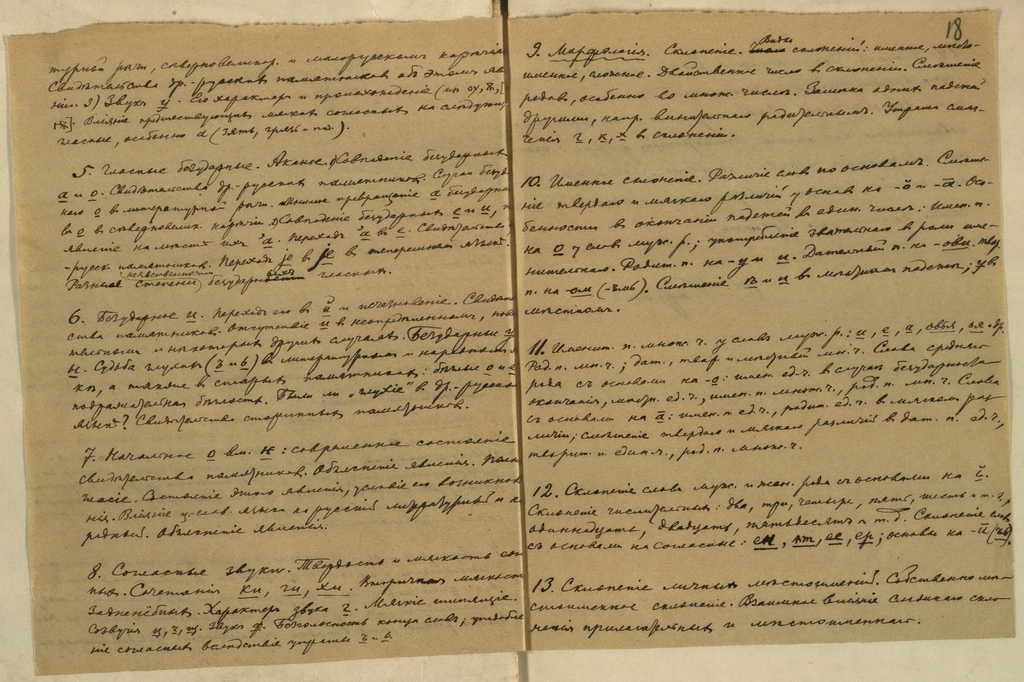 турной речи, северновеликор. и малорусском наречии
Свидетельства др.-русских памятников об этом явле-
нии. 5) Звукъ у. Его характеръ и происхожденіе (из оу, ѫ,
Вліяніе предшествующихъ мягкихъ согласныхъ на следующие
гласные, особенно а (зять, грязь и пр.).
5. Гласные безударные. Аканье. Совпаденіе безударныхъ
а и о. Свидѣтельства др.-русскихъ памятниковъ. Случаи безудар-
наго о в литературной речи. Мнимое превращеніе а безударна-
го в о в северновелик. наречіи. Совпаденіе безударныхъ е и и,
явленіе на месте ихъ ᵃа. Переходъ ᵃа в е. Свидѣтельства
-русск. памятников. Переходъ в теперешнем языке.
Разные степени безударных гласных.
6. Безударное и. Переходъ его в й и исчезновеніе. Свидѣтель-
ства памятников. Отсутствіе и в неопределенном, пове-
лительном и некоторых других случаях. Безударный у
Судьба глухих (ъ и ь) в литературном и народном
ке, а также в старых памятниках: беглые о и е
подражательная беглость. Были ли „глухие" в др.-русском
языке? Свидетельства старинных памятников.
7. Начальное о вм. е: современное состояніе
свидетельства памятников. Объясненіе явленія. Полно-
гласіе. Состояніе этого явленія, условіе его возникнове-
нія. Вліяніе ц.-слав. языка на русскій литературный и на-
родный. Объясненіе явленія.
8. Согласные звуки. Твердость и мягкость соглас-
ных. Сочетанія ки, ги, хи. Вторичная мягкость
задненёбных. Характеръ звука г. Мягкіе шипящіе.
Созвучія ц, ч, щ. Звукъ ф. Безголосность конца слов; уподобле-
ніе согласных вследствіе утраты ъ-ь.
18
9. Морфологія. Склоненіе. Виды склоненій: именное, место-
именное, сложное. Двойственное число в склоненіи. Смешеніе
родов, особенно во множ. числе. Замена одних падежей
другими, напр. винительного родительным. Утрата смяг-
ченія г, к, х в склоненіи.
10. Именное склоненіе. Различіе слов по основам. Смеше-
ніе твердого и мягкого различій у основ на -ŏ и -ā. Осо-
бенности в окончаніи падежей в един. числе: Имен. п.
на о у слов муж. р.; употребленіе звательного в роли име-
нительного. Родит. п. на -у и и. Дательный п. на -ови, твор.
п. на -ом (-ъмь). Смешеніе ѣ и и в местном падеже; у в
местном.
11. Именит. п. множ. ч. у слов муж. р.: и, е, а, овья, ья и др.
Род. п. мн. ч.; дат., твор. и местный мн. ч. Слова средняго
рода с основами на -о: имен. ед. ч. в случае безударности
окончанія, местн. ед. ч., имен. п. множ. ч., род. п. мн. ч. Слова
с основами на ā: имен. п. ед. ч., родит. ед. ч. в мягком раз-
личіи; смешеніе твердого и мягкого различія в дат. п. ед. ч.,
творит. п. един. ч., род. п. множ. ч.
12. Склоненіе слов муж. и жен. рода с основами на ĭ.
Склоненіе числительных: два, три, четыре, пять, шесть и т. д.,
одиннадцать, двадцать, пятьдесят и т. д. Склоненіе слов
с основами на согласные: ен, ят, ес, ер; основы на -ū (ъв).
13. Склоненіе личных местоименій. Собственно ме-
стоименное склоненіе. Взаимное вліяніе сложного скло-
ненія прилагательных и местоименного.